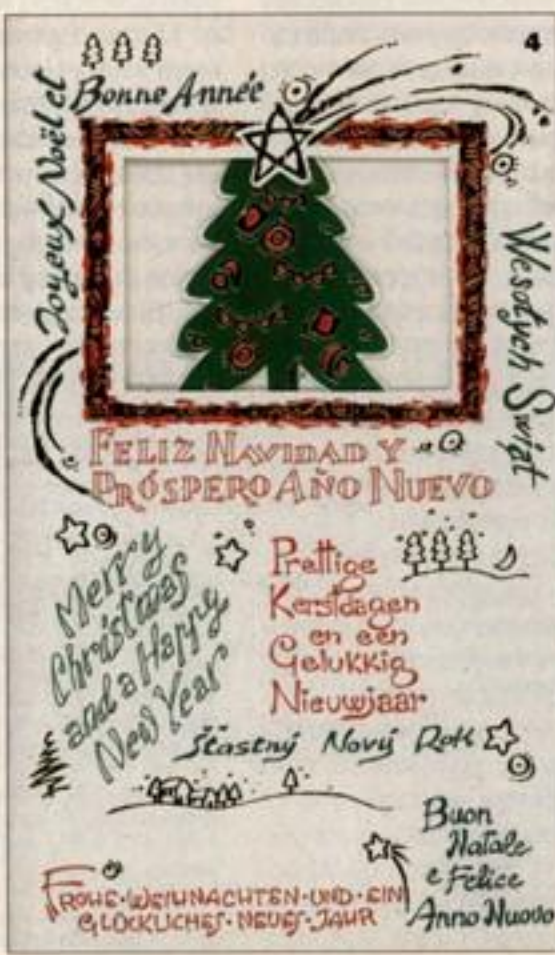 4
Joyeux Noël et
Bonne Année
Wesołych Świąt
FELIZ NAVIDAD Y
PRÓSPERO AÑO NUEVO
Merry
Christmas
and a Happy
New Year
Prettige
Kerstdagen
en een
Gelukkig
Nieuwjaar
Šťastný Nový Rok
Buon
Natale
e Felice
Anno Nuovo
FROHE·WEIHNACHTEN·UND·EIN
GLÜCKLICHES·NEUES·JAHR